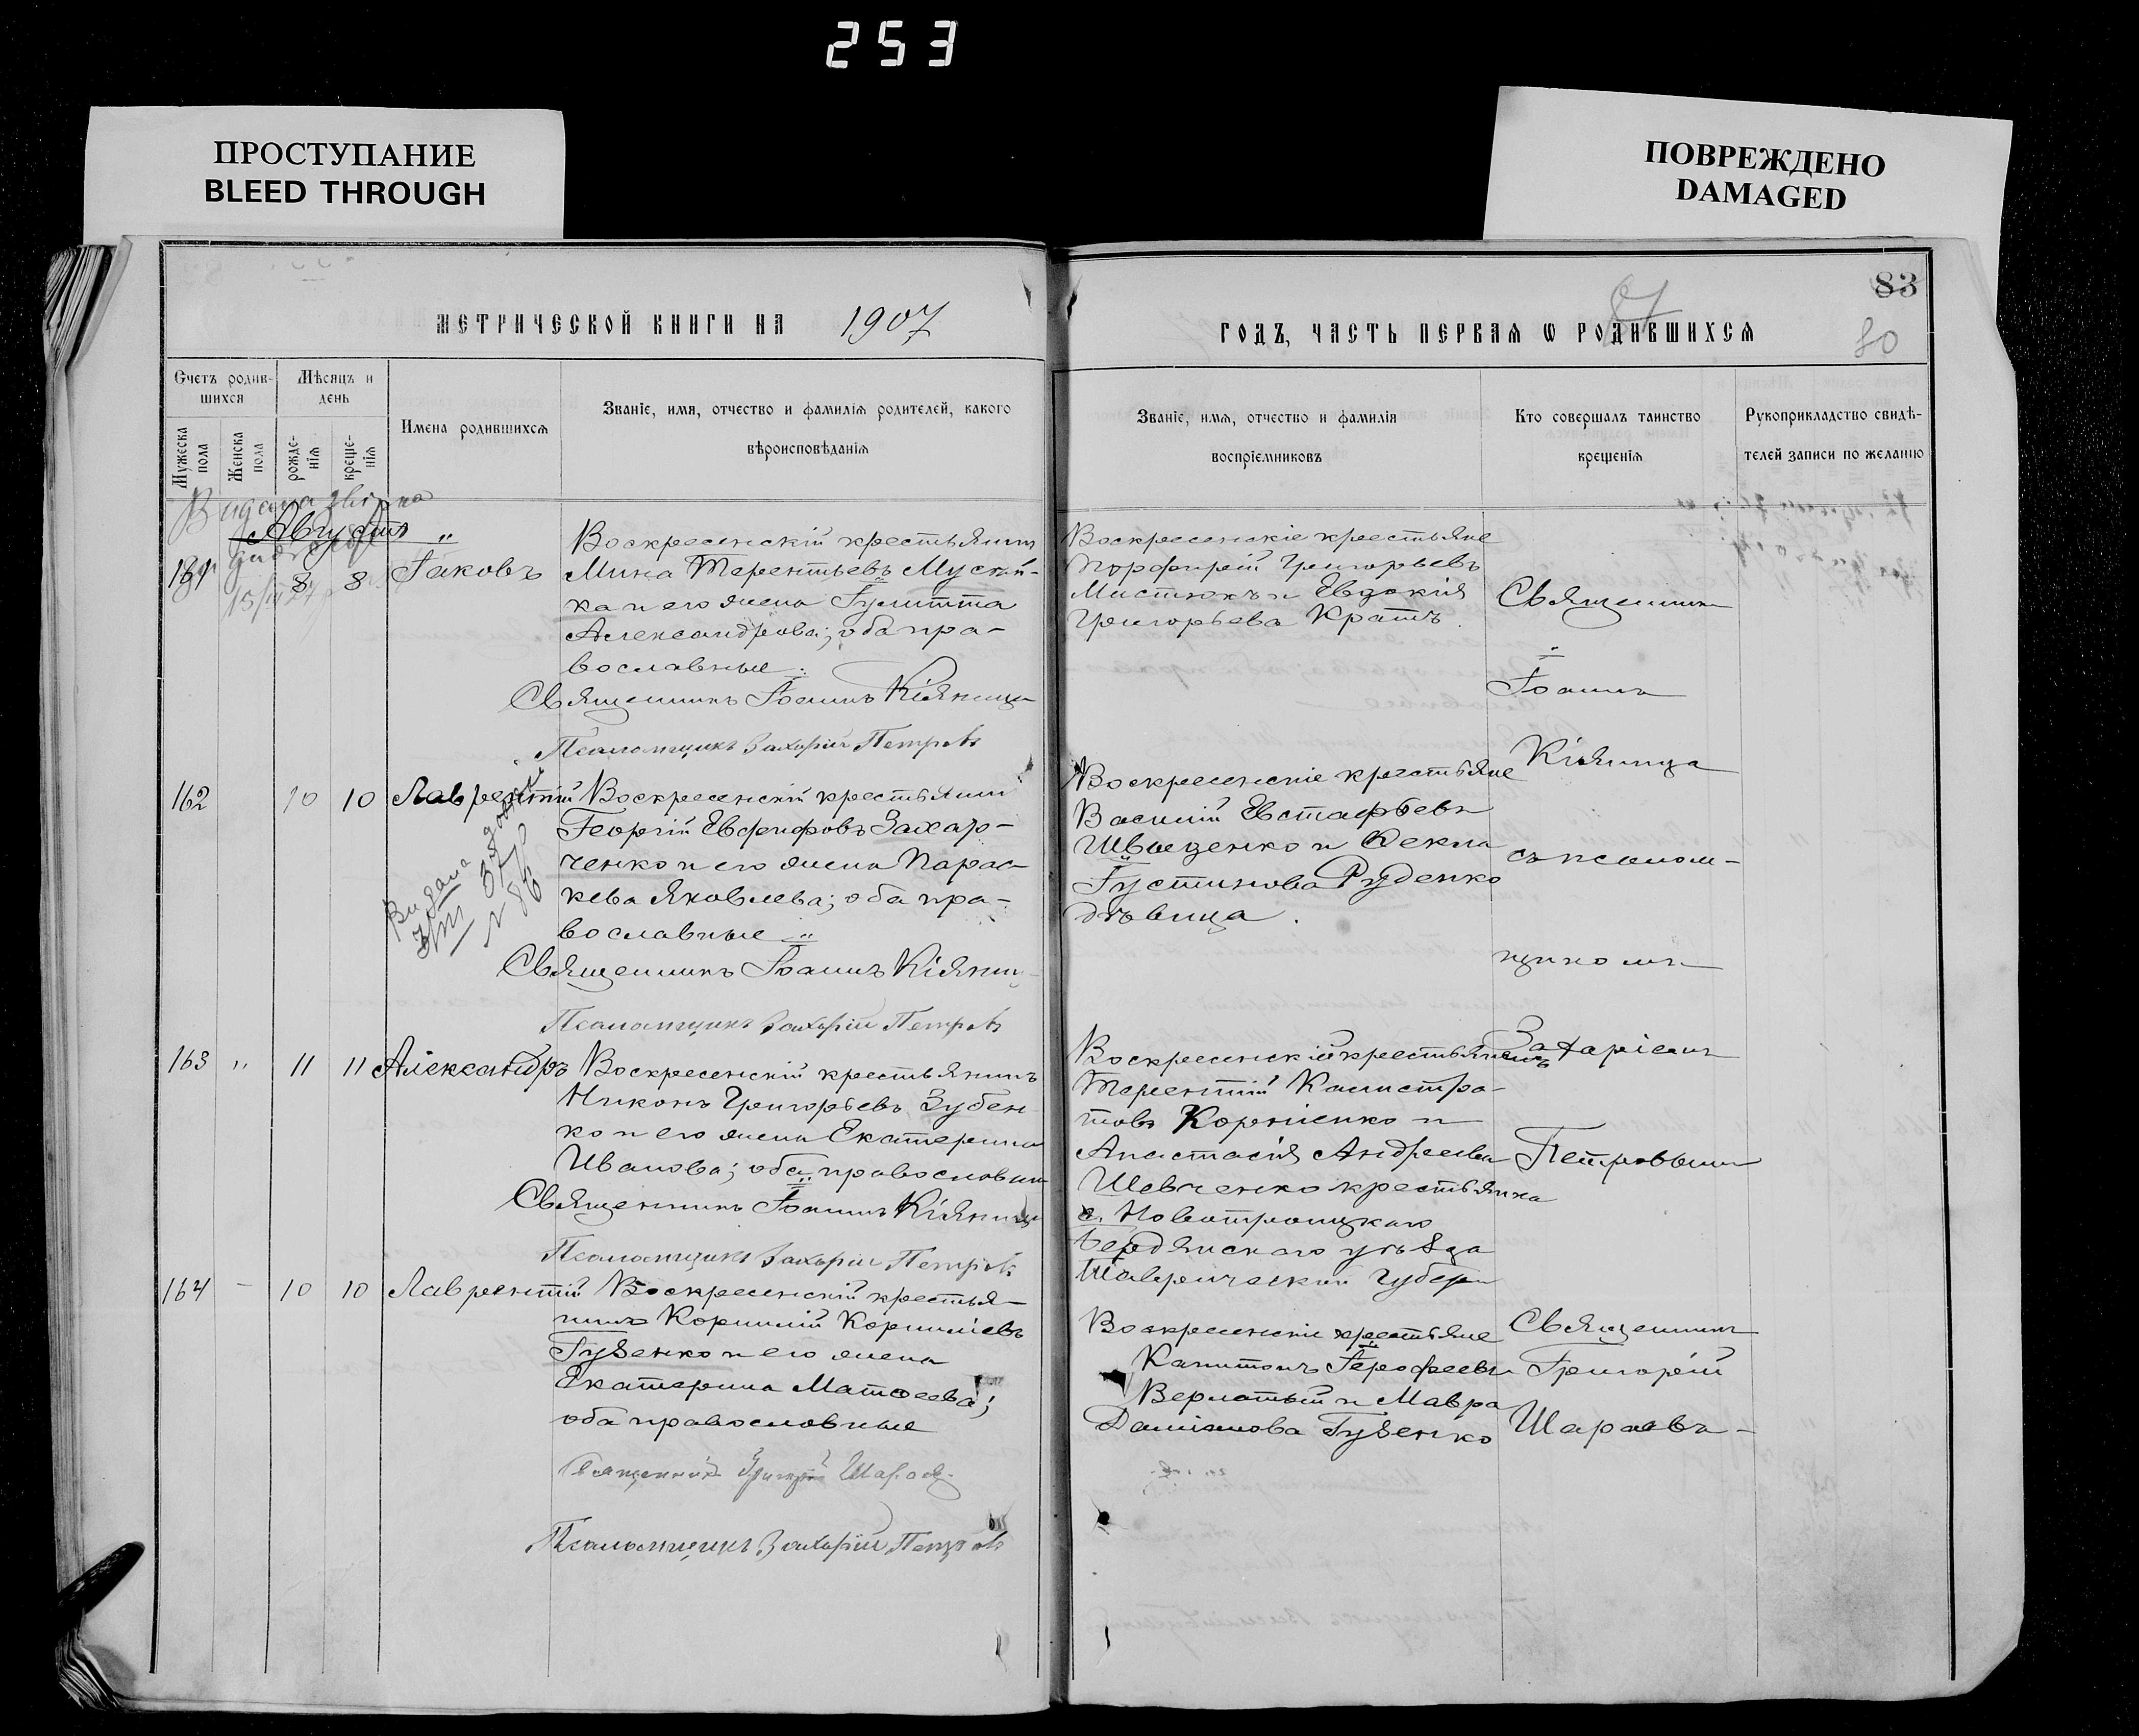 253
ПРОСТУПАНИЕ
BLEED THROUGH
ПОВРЕЖДЕНО
DAMAGED
83
80
МЕТРИЧЕСКОЙ КНИГИ НА 1907
ГОДЪ, ЧАСТЬ ПЕРВАЯ Ѡ РОДИВШИХСЯ
Счетъ родив-
шихся
Мѣсяцъ и
день
Мужеска
пола
Женска
пола
рожде-
нія
креще-
нія
Имена родившихся
Званіе, имя, отчество и фамилія родителей, какого
вѣроисповѣданія
Званіе, имя, отчество и фамилія
воспріемниковъ
Кто совершалъ таинство
крещенія
Рукоприкладство свидѣ-
телей записи по желанію
Августъ
8 8 Іаковъ
Воскресенскій крестьянинъ
Мина Терентьевъ Мускай-
ка и его жена Іулитта
Александрова; оба пра-
вославные.
Священникъ Іоаннъ Кіяница
Псаломщикъ Захарій Петровъ
Воскресенскіе крестьяне
Порфирій Григорьевъ
Мистюкъ и Евдокія
Григорьева Кратъ.
Священникъ
Іоаннъ
Кіяница
съ псалом-
щикомъ
Захаріемъ
Петровымъ
162 10 10 Лаврентій
Воскресенскій крестьянин
Георгій Евфифовъ Захар-
ченко и его жена Парас-
кева Яковлева; оба пра-
вославные
Священникъ Іоаннъ Кіяниц
Псаломщикъ Захарій Петровъ
Видана
Воскресенскіе крестьяне
Василій Евстафьевъ
Швыденко и Ѳекла
Іустинова Руденко
дѣвица.
163 " 11 11 Александръ
Воскресенскій крестьянинъ
Никонъ Григорьевъ Зубен
ко и его жена Екатерина
Иванова; оба православн
Священникъ Іоаннъ Кіяница
Псаломщикъ Захарій Петровъ
Воскресенскій крестьянинъ
Терентій Калистра-
товъ Корніенко и
Анастасія Андреева
Шевченко крестьянка
с. Новотроицкаго
Бердянскаго уѣзда
Таврической губерн
164 - 10 10 Лаврентій
Воскресенскій крестья-
нинъ Корнилій Корниліевъ
Гузенко и его жена
Екатерина Матѳеева;
оба православные
Священникъ Григорій Шараевъ
Псаломщикъ Захарій Петровъ
Воскресенскіе крестьяне
Капитонъ Іерофеевъ
Верлатый и Мавра
Даміанова Гузенко
Священникъ
Григорій
Шараевъ